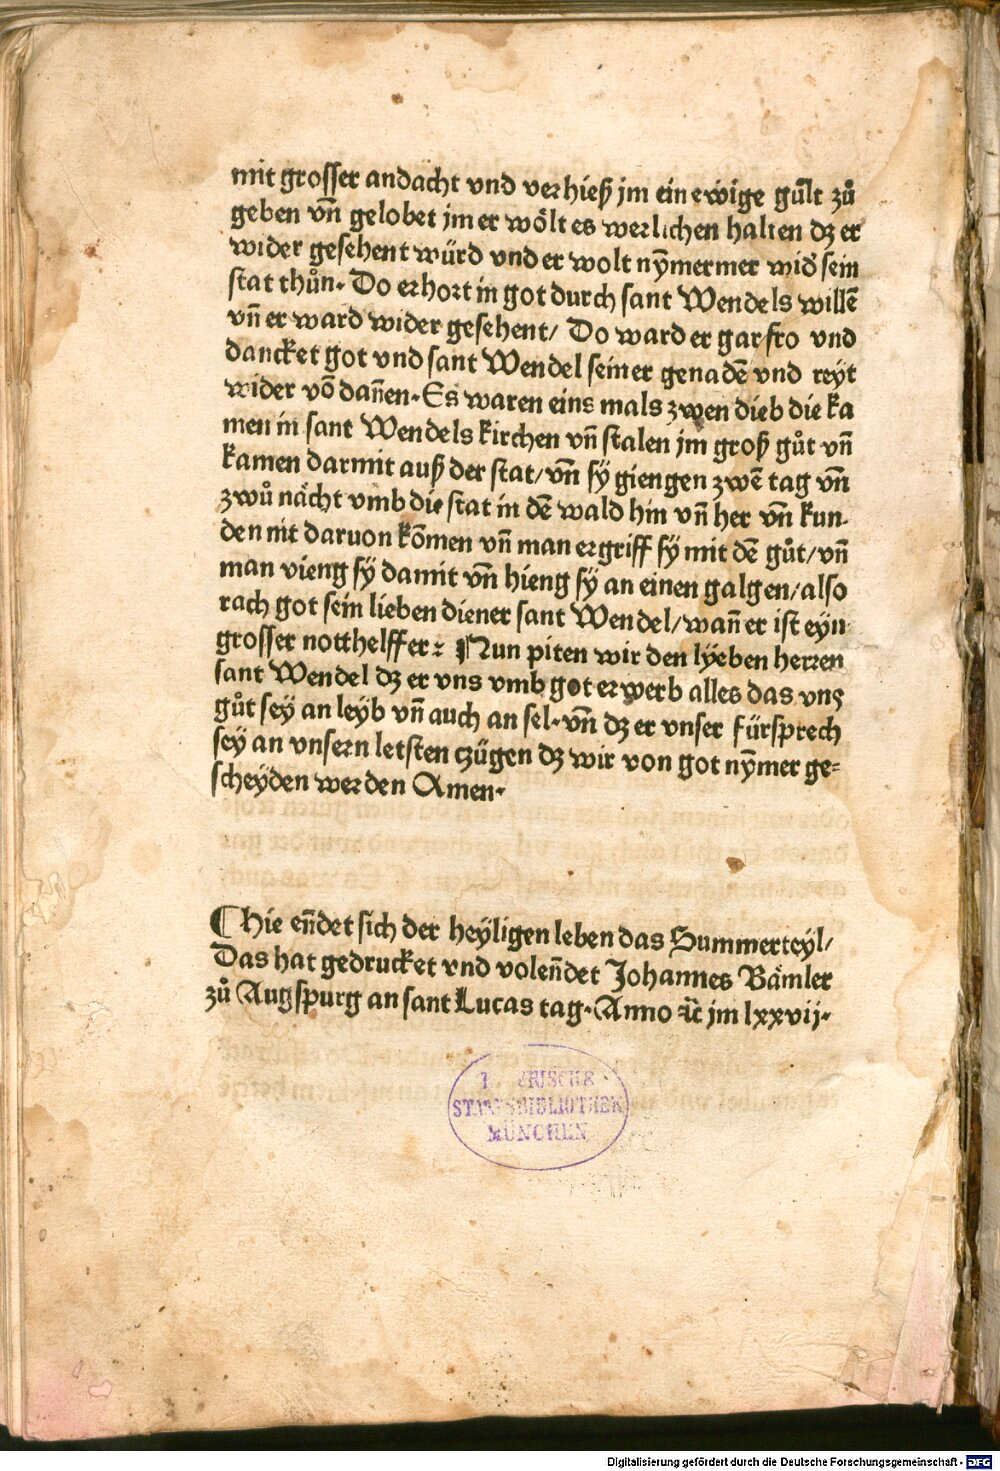 mit grosser andächt vnd verhieß jm ein ewige gu̇lt zů
geben vn̄ gelobet jm er wölt es werlichen halten dz er
wider gesehent würd vnd er wolt nȳmermer wid̕ sein
stat thůn. Do erhort in got durch sant Wendels willē
vn̄ er ward wider gesehent/ Do ward er gar fro vnd
dancket got vnd sant Wendel seiner genadē vnd reyt
wider vō dan̄en. Es waren eins mals zwen dieb die ka
men in sant Wendels kirchen vn̄ stalen jm groß gůt vn̄
kamen darmit auß der stat/ vn̄ sÿ giengen zwē tag vn̄
zwů nächt vmb die stat in dē wald hin vn̄ her vn̄ kun-
den nit daruon kōmen vn̄ man ergriff sÿ mit dē gůt/ vn̄
man vieng sÿ damit vn̄ hieng sÿ an einen galgen/ also
rach got sein lieben diener sant Wendel/ wan̄ er ist eyn
grosser notthelffer: Nun piten wir den lÿeben herren
sant Wendel dz er vns vmb got erwerb alles das vns
gůt sey an leÿb vn̄ auch an sel. vn̄ dz er vnser fürsprech
seÿ an vnsern letsten czügen dz wir von got nȳmer ge=
scheÿden werden Amen.
¶ Hie en̄det sich der heÿligen leben das Summerteÿl/
Das hat gedrucket vnd volen̄det Johannes Bämler
zů Augspurg an sant Lucas tag. Anno ꝛc̄ jm lxxvij.
STAATSBIBLIOTHEK
MÜNCHEN
Digitalisierung gefördert durch die Deutsche Forschungsgemeinschaft - DFG